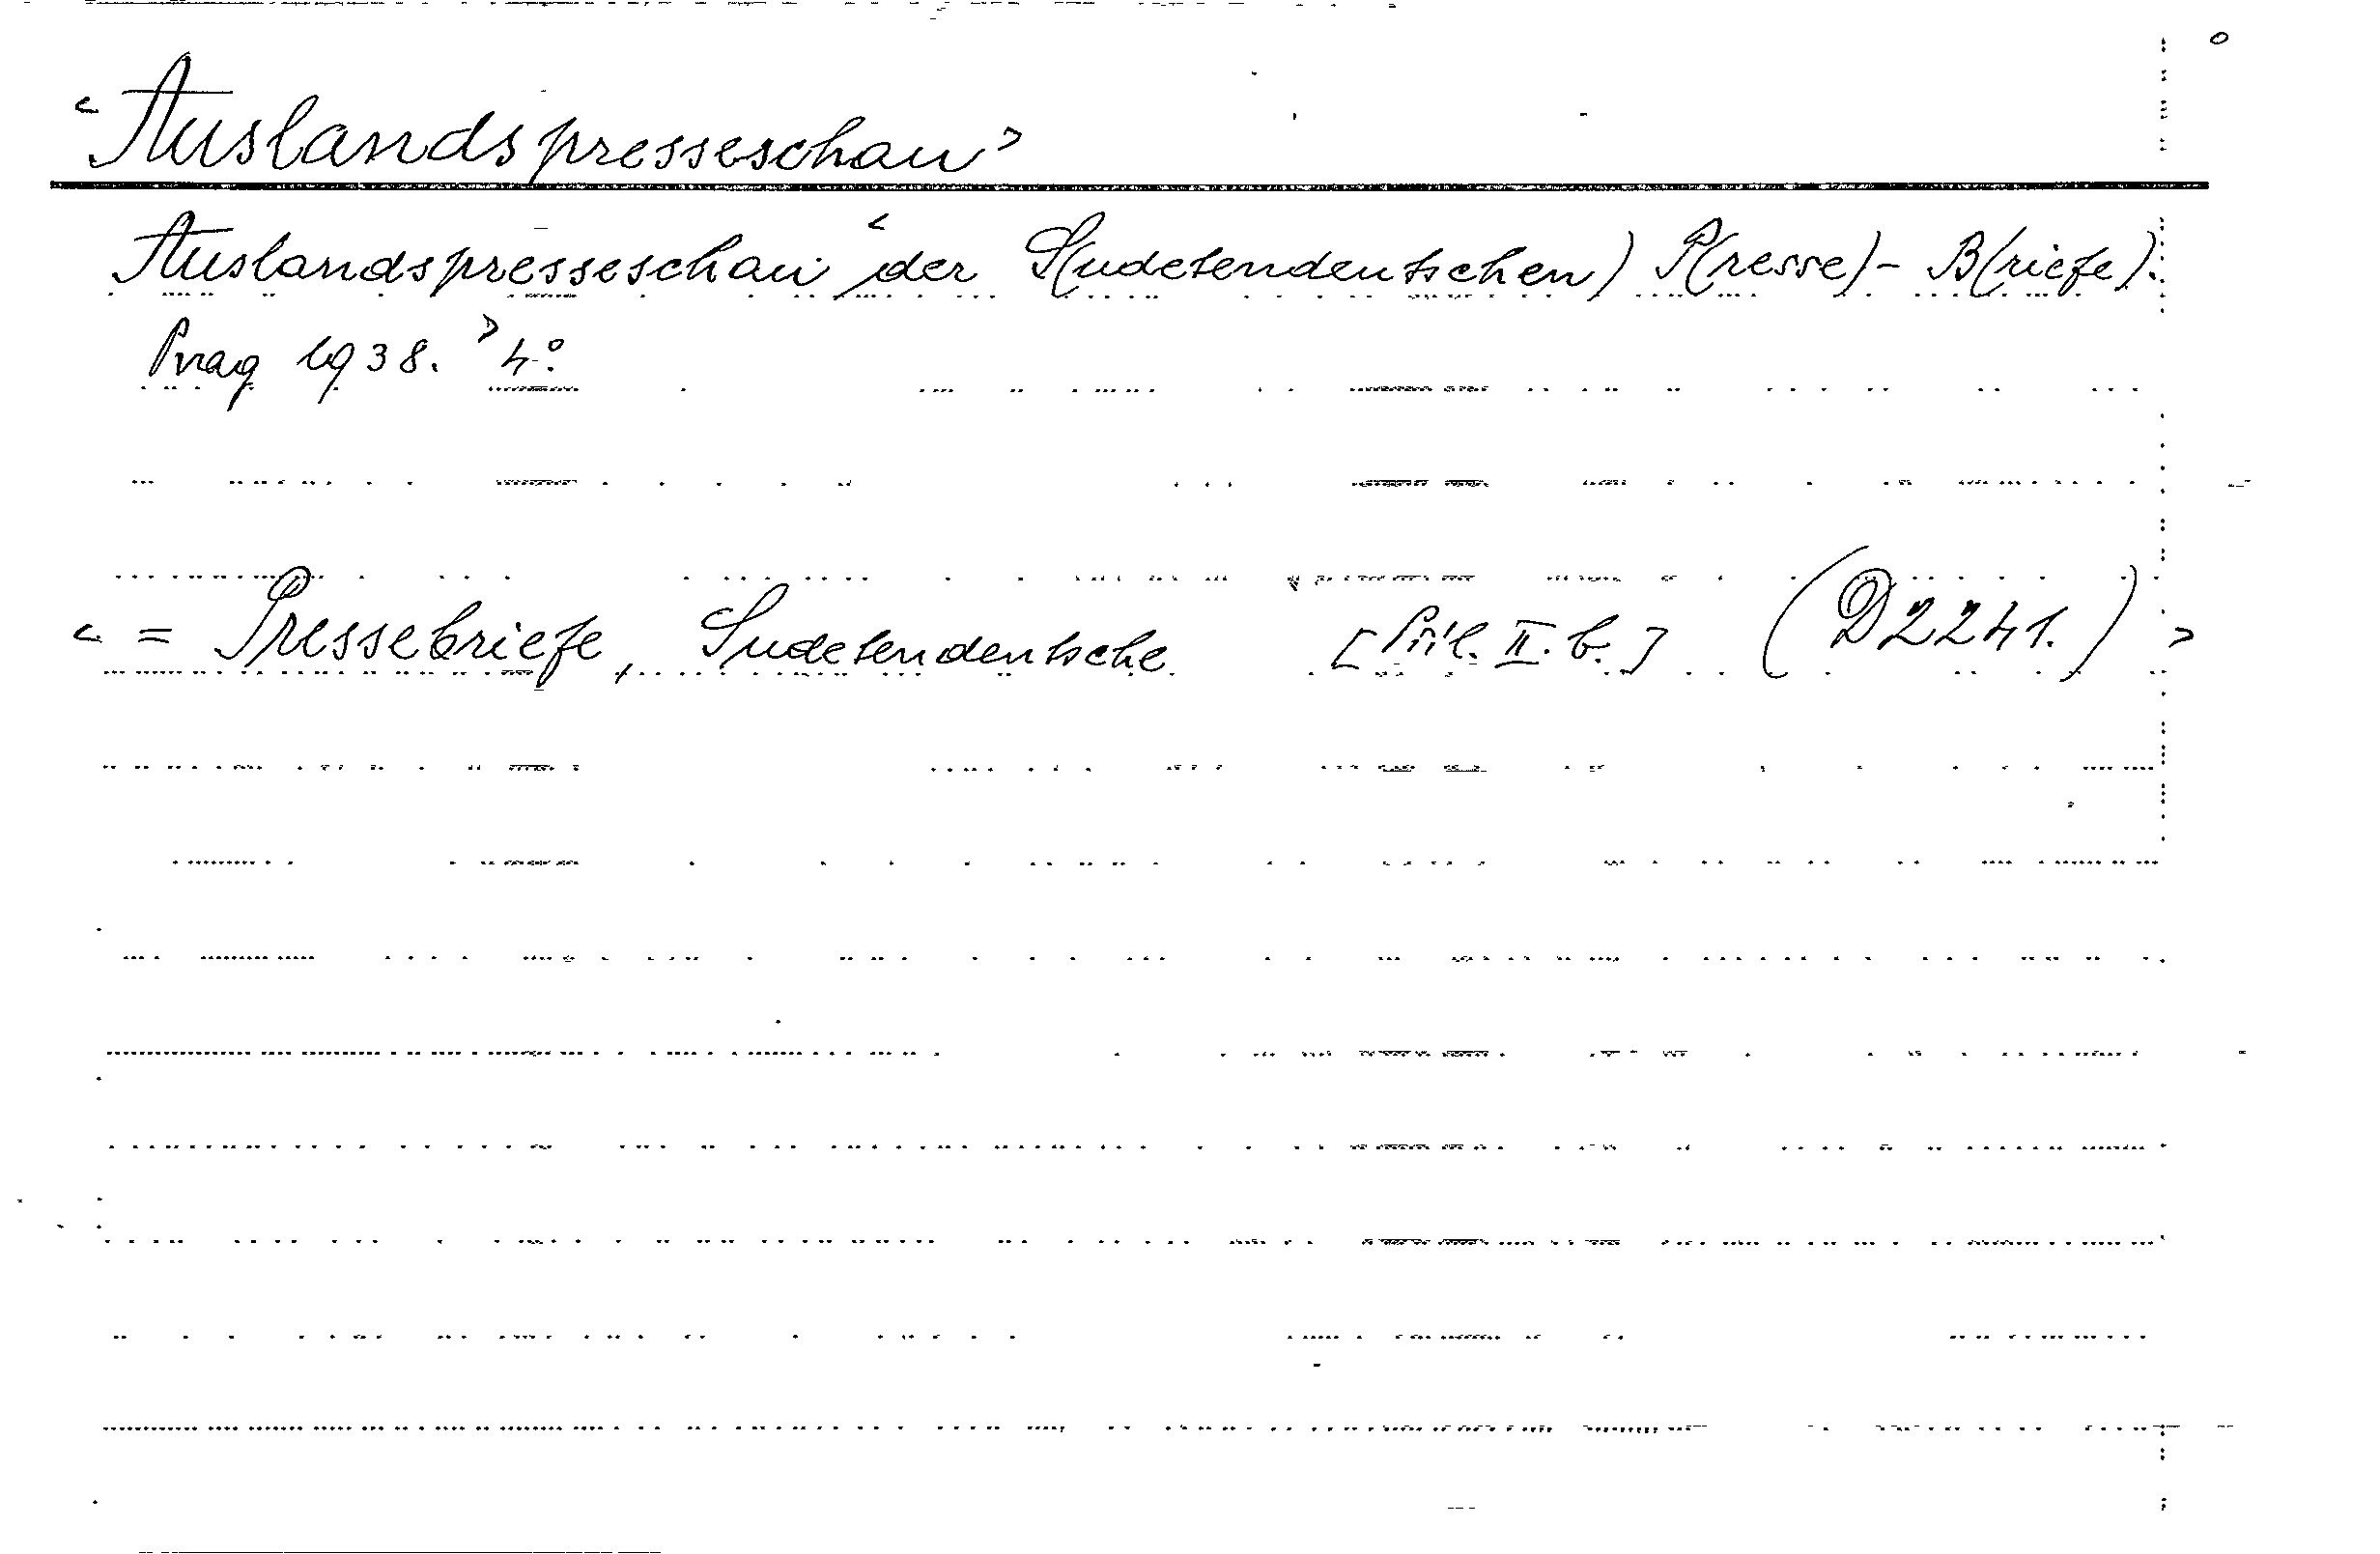 <Auslandspresseschau>
Auslandspresseschau <der S(udetendeutschen) P(resse)- B(riefe).
Prag 1938.> 4°.
< = Pressebriefe, Sudetendeutsche [Příl. II. b.] (D2241.) >